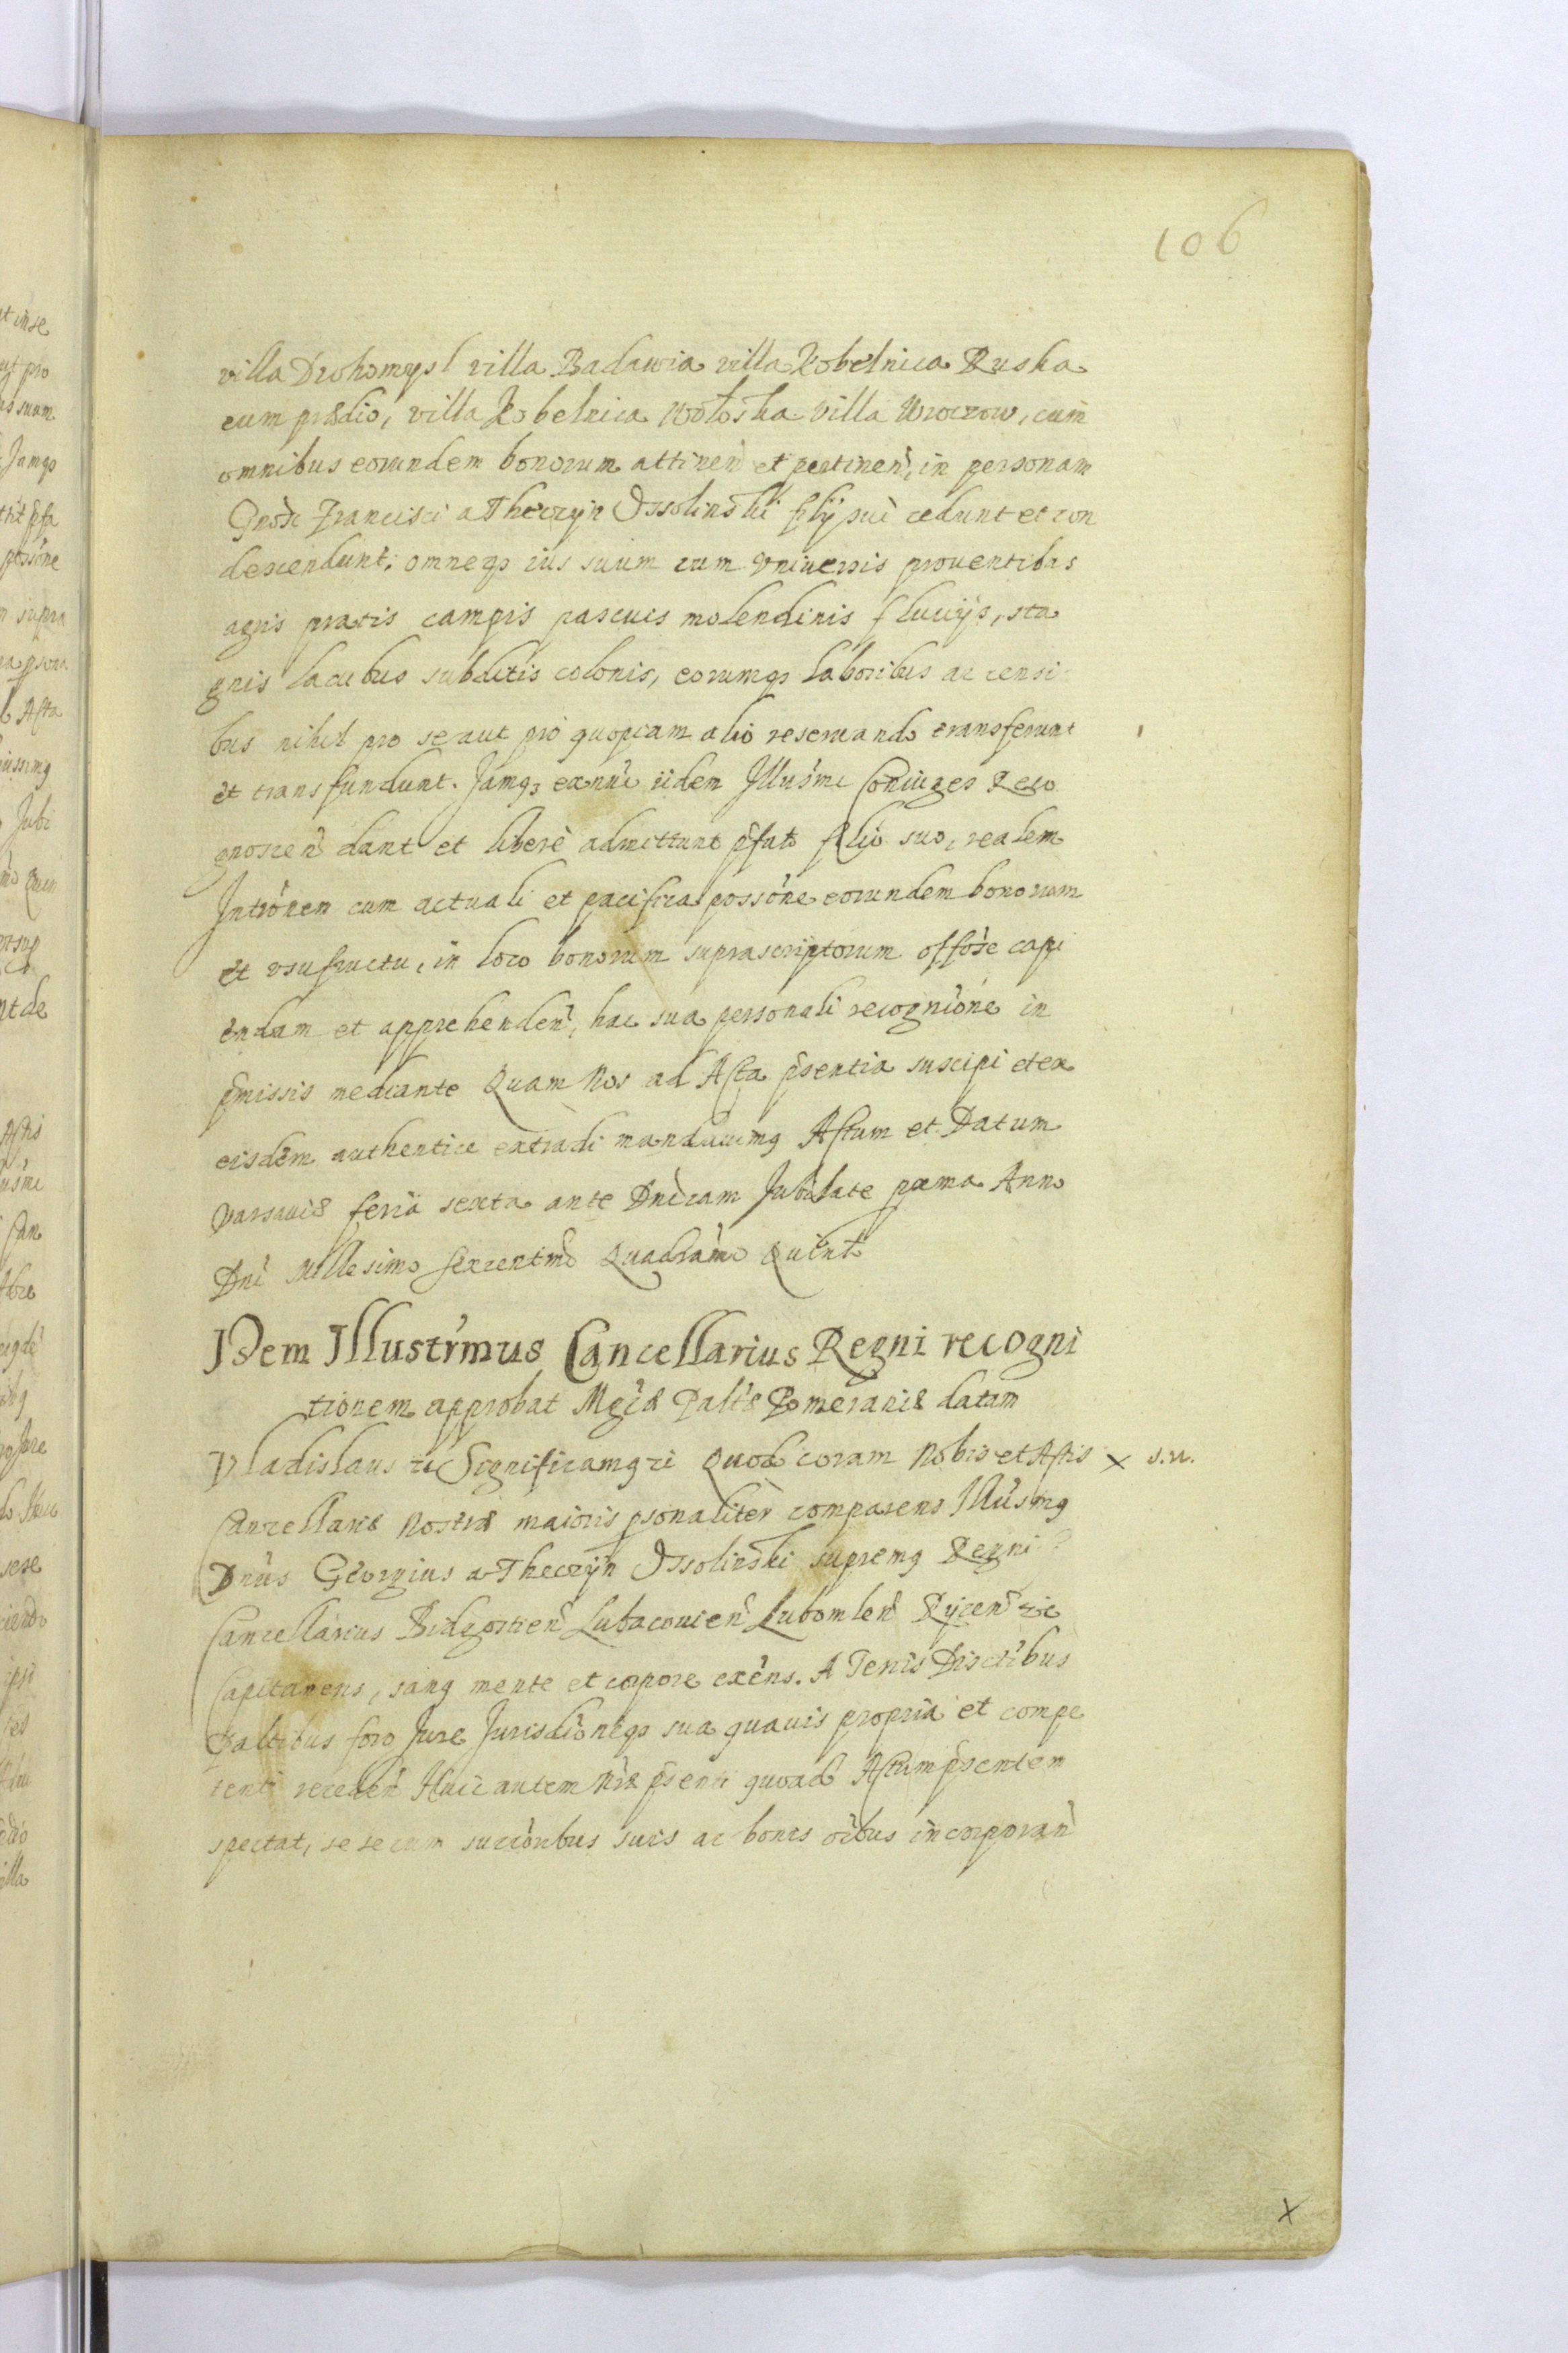 106
villa Drohomysl villa Badawia villa Kobelnica Ruska
cum prædio, villa Kobelnica Wołoska villa Wroczow, cum
omnibus eorundem bonorum attinen̄ et pertinen̄, in personam
Gnōsi Francisci a Theczyn Ossolinski filij sui cedunt et con
descendunt, omneqз ius suum cum vniuersis prouentibus
agris pratis campis pascuis molendinis fluuijs, sta
gnis lacubus subditis colonis, eorumqз laboribus ac censi
bus nihil pro se aut pro quopiam alio reseruando transferunt
et transfundunt. Jamqз ex nūc iidem Illusmi Coniuges Reco
gnoscen̄ dant et liberè admittunt p̄fato filio suo, realem
Intrōnem cum actuali et pacifica possōne eorundem bonorum
et vsufructu, in loco bonorum suprascriptorum offōse capi
endam et apprehenden̄, hac sua personali recognīone in
p̄missis mediante Quam Nos ad Acta p̄sentia suscipi et ex
eisdem authentice extradi mandauimꝰ Actum et Datum
Varsauiæ feria sexta ante Dnīcam Jubilate pxma Anno
Dnī Millesimo sexcentmo Quadrāmo Quinto
IDem Illustrmus Cancellarius Regni recogni
tionem approbat Mgcæ Paltæ Pomeraniæ datam
Vladislaus zc Significamꝰ zc Quod coram Nobis et Actis × s.n.
Cancellariæ Nostræ maioris psonaliter comparens Illusmꝰ
Dnūs Georgius a Theczyn Ossolinski supremꝰ Regni
Cancellarius Bidgostien̄ Lubaczouien̄ Lubomlen̄ Ryicen̄ zc
Capitaneus, sanꝰ mente et corpore exēns. A Terris Disctibus
Paltibus foro Jure Jurisdīoneqз sua quauis propria et compe
tenti receden̄ Huic autem Nrǣ p̄senti quoad Actum p̄sentem
spectat, se se cum succōribus suis ac bonis oībus incorporan̄
×